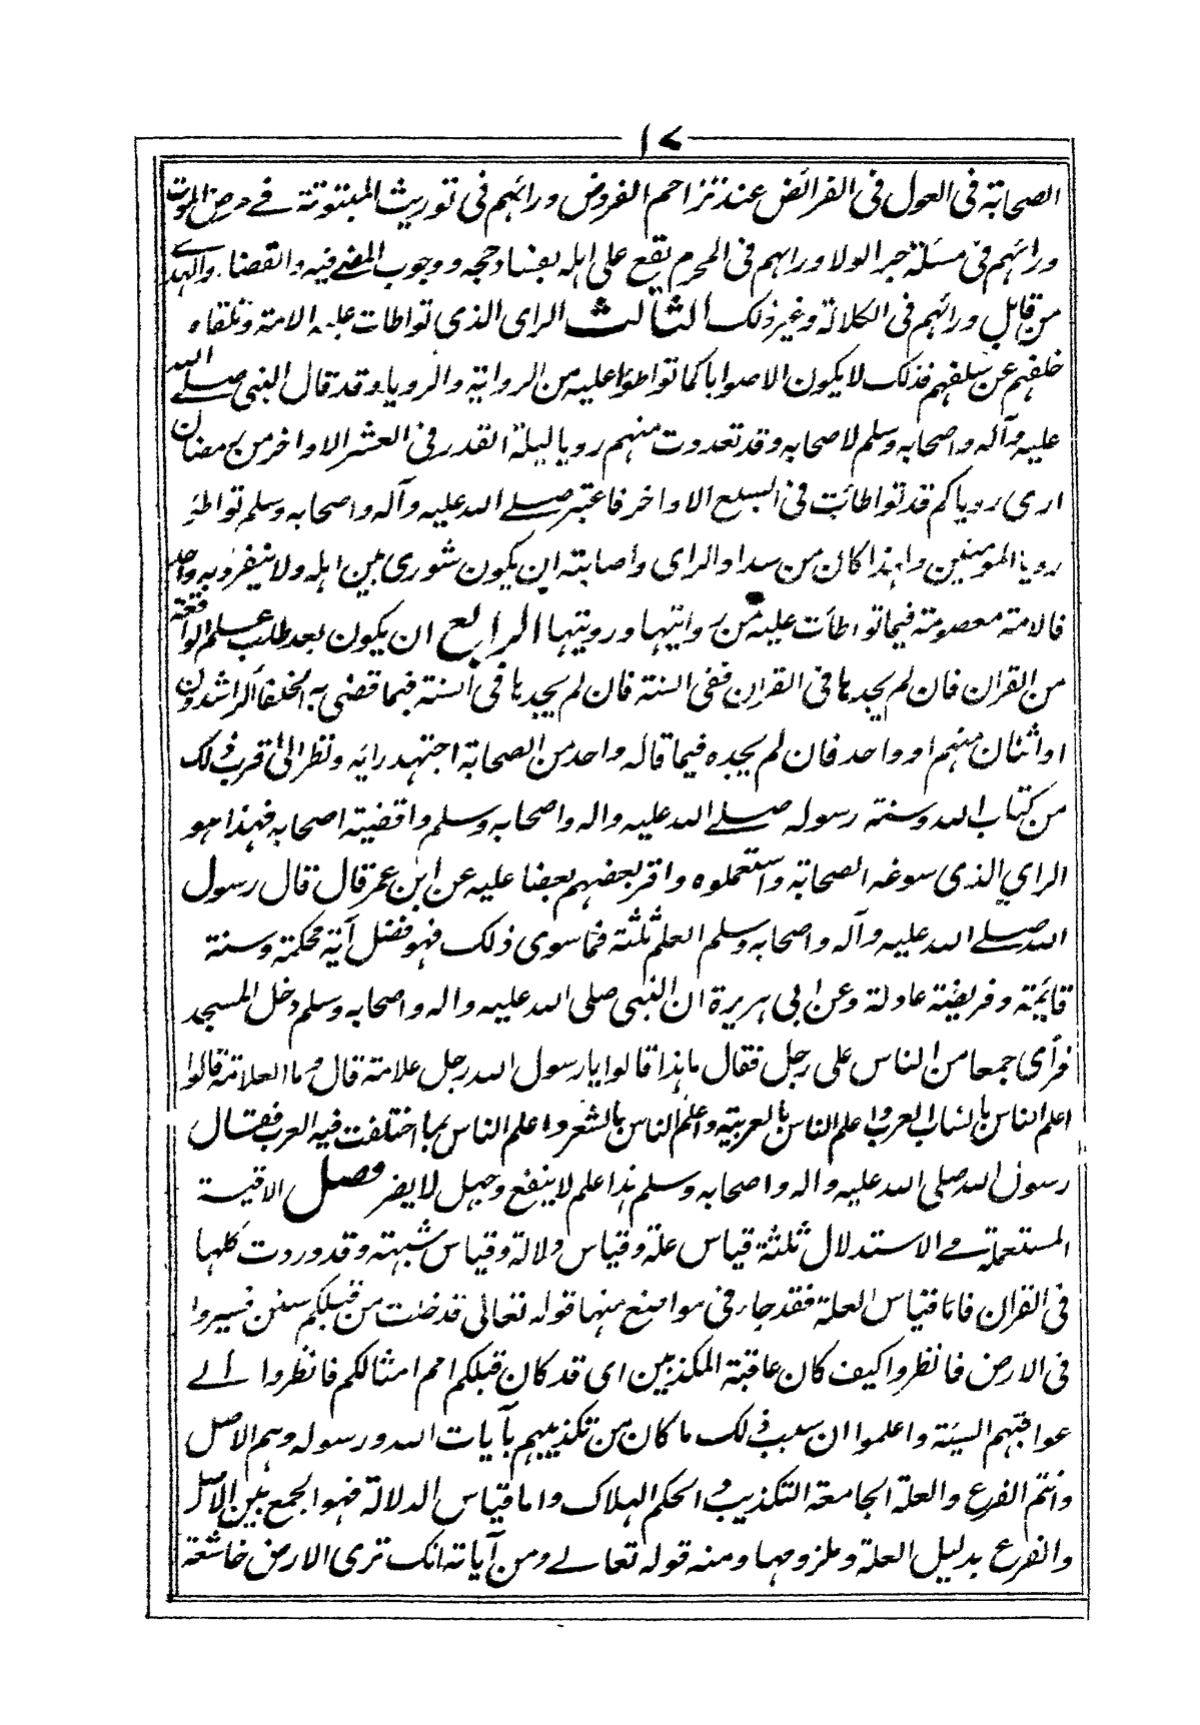 ١٧
الصحابة فى العول فى الفرائض عند تزاحم الفروض ورائهم فى توريث المبتوتة فے مرض الموت
ورائهم فى مسئلة جر الولا ورائهم فى المحرم يقع على اهله بفساد حجه ووجوب المضے فيه والقضاء والهدے
من قابل ورائهم فى الكلالة وغير ذلك الثالث الراى الذى تواطات عليه الامة وتلقاه
خلفهم عن سلفهم فذلك لا يكون الا صوابا كما تواطوا عليه من الرواية والرويا وقد قال النبى صلے الله
عليه وآله واصحابه وسلم لاصحابه وقد تعددت منهم رويا ليلة القدر فى العشر الاواخر من رمضان
ارى روياكم قد تواطأت فى السبع الاواخر فاعتبر صلے الله عليه وآله واصحابه وسلم تواطؤ
رويا المومنين ولهذا كان من سداد الراى واصابته ان يكون شورى بين اهله ولا ينفرد به واحد
فالامة معصومة فيما تواطأت عليه من روايتها ورويتها الرابع ان يكون بعد طلب علم الواقعة
من القران فان لم يجدها فى القران ففى السنة فان لم يجدها فى السنة فبما قضى به الخلفا الراشدون
او اثنان منهم او واحد فان لم يجده فيما قاله واحد من الصحابة اجتهد رايه ونظر الى اقرب ذلك
من كتاب الله وسنة رسوله صلے الله عليه واله واصحابه وسلم واقضية اصحابه فهذا هو
الراي الذى سوغه الصحابة واستعملوه واقر بعضهم بعضا عليه عن ابن عمر قال قال رسول
الله صلے الله عليه وآله واصحابه وسلم العلم ثلثة فما سوى ذلك فهو فضل آية محكمة وسنة
قايمة وفريضة عادلة وعن ابى هريرة ان النبى صلى الله عليه واله واصحابه وسلم دخل المسجد
فرأى جمعا من الناس على رجل فقال ما هذا قالوا يا رسول الله رجل علامة قال وما العلامة قالوا
اعلم الناس بانساب العرب واعلم الناس بالعربية واعلم الناس بالشعر واعلم الناس بما اختلفت فيه العرب فقال
رسول الله صلى الله عليه واله واصحابه وسلم هذا علم لا ينفع وجهل لا يضر فصل الاقيسة
المستعملة فے الاستدلال ثلثة قياس علة وقياس دلالة وقياس شبهة وقد وردت كلها
فى القران فاما قياس العلة فقد جاء فى مواضع منها قوله تعالى قد خلت من قبلكم سنن فسيروا
فى الارض فانظروا كيف كان عاقبة المكذبين اى قد كان قبلكم امم امثالكم فانظروا الے
عواقبهم السيئة واعلموا ان سبب ذلك ما كان من تكذيبهم بآيات الله ورسوله وهم الاصل
وانتم الفرع والعلة الجامعة التكذيب والحكم الهلاك واما قياس الدلالة فهو الجمع بين الاصل
والفرع بدليل العلة وملزومها ومنه قوله تعالے ومن آياته انك ترى الارض خاشعة